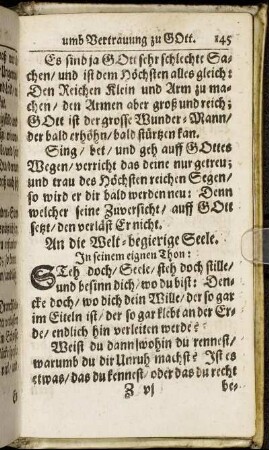 umb Vertrauung zu GOtt. 145
Es sind ja GOtt sehr schlechte Sa-
chen/ und ist dem Höchsten alles gleich:
Den Reichen Klein und Arm zu ma-
chen/ den Armen aber groß und reich;
GOtt ist der grosse Wunder-Mann/
der bald erhöhn/ bald stürtzen kan.
Sing/ bet/ und geh auff GOttes
Wegen/ verricht das deine nur getreu;
und trau des Höchsten reichen Segen/
so wird er dir bald werden neu: Denn
welcher seine Zuversicht/ auff GOtt
setzt/ den verläst Er nicht.
An die Welt-begierige Seele.
In seinem eignen Thon:
STeh doch/ Seele/ steh doch stille/
und besinn dich/ wo du bist: Den-
cke doch/ wo dich dein Wille/ der so gar
im Eiteln ist/ der so gar klebt an der Er-
de/ endlich hin verleiten werde?
Weist du dann wohin du rennest/
warumb du dir Unruh machst? Ist es
etwas/ das du kennest/ oder das du recht
Z vj be-